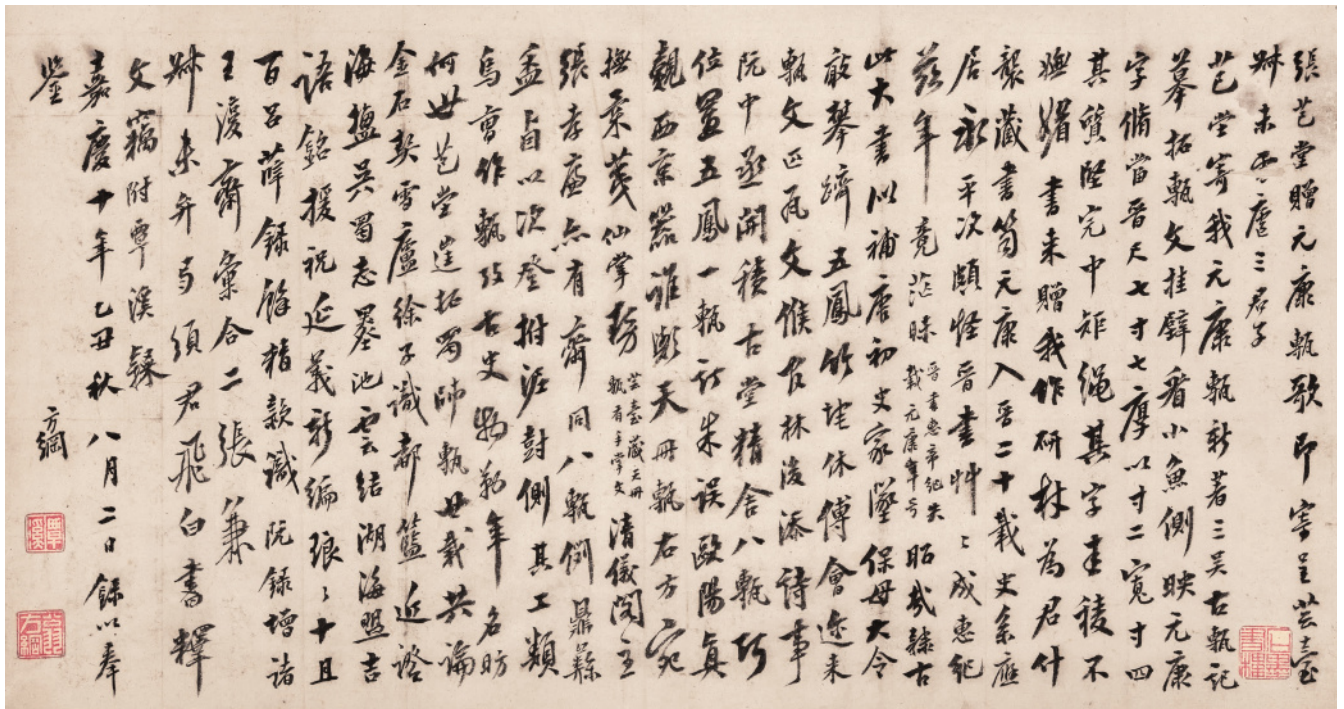 張芑堂贈元康甎歌即寄呈芸臺
叔未 虛三君子
芑堂寄我元康甎新著三吳古甎記
摹拓甎文挂壁看小魚側映元康
字脩當晉尺七寸七厚以寸二寬寸四
其質堅完中矩繩其字圭稜不
嫵媚書來贈我作研材為君什
襲藏書笥元康入晉二十載史系應
居永平次頗怪晉書艸艸成惠紀
茲年竟茫昧晉書惠帝紀失載元康年號昭哉隸古
此大書以補唐初史家墜保母大令
敢攀躋五鳳竹垞休傅會邇來
甎文匹瓦文候官林後添詩事
阮中丞開積古堂精舍八甎所
位置五鳳一甎訪朱誤歐陽真
覯西京器誰歟天冊甎右方宛
撫參茭仙掌勢芸臺藏天冊甎有手掌文清儀閣主
張孝廉亦有齋同八甎例鼎繇
盉卣以次登拊涯對側其工類
馬曹作甎攷古史物勒年名昉
何世芑堂筐拓蜀師甎廿載共論
金石契雪廬徐子識都籃近證
海鹽吳蜀志墨池雲結湖海盟吉
語銘援祝延義新編琅琅十且
百呂薛錄餘稽款識阮錄增諸
王復齋彙合二張兼
叔未弁與須君飛白書釋
文竊附覃溪隸
嘉慶十年乙丑秋八月二日錄以奉
鑒
方綱
覃溪
翁方綱